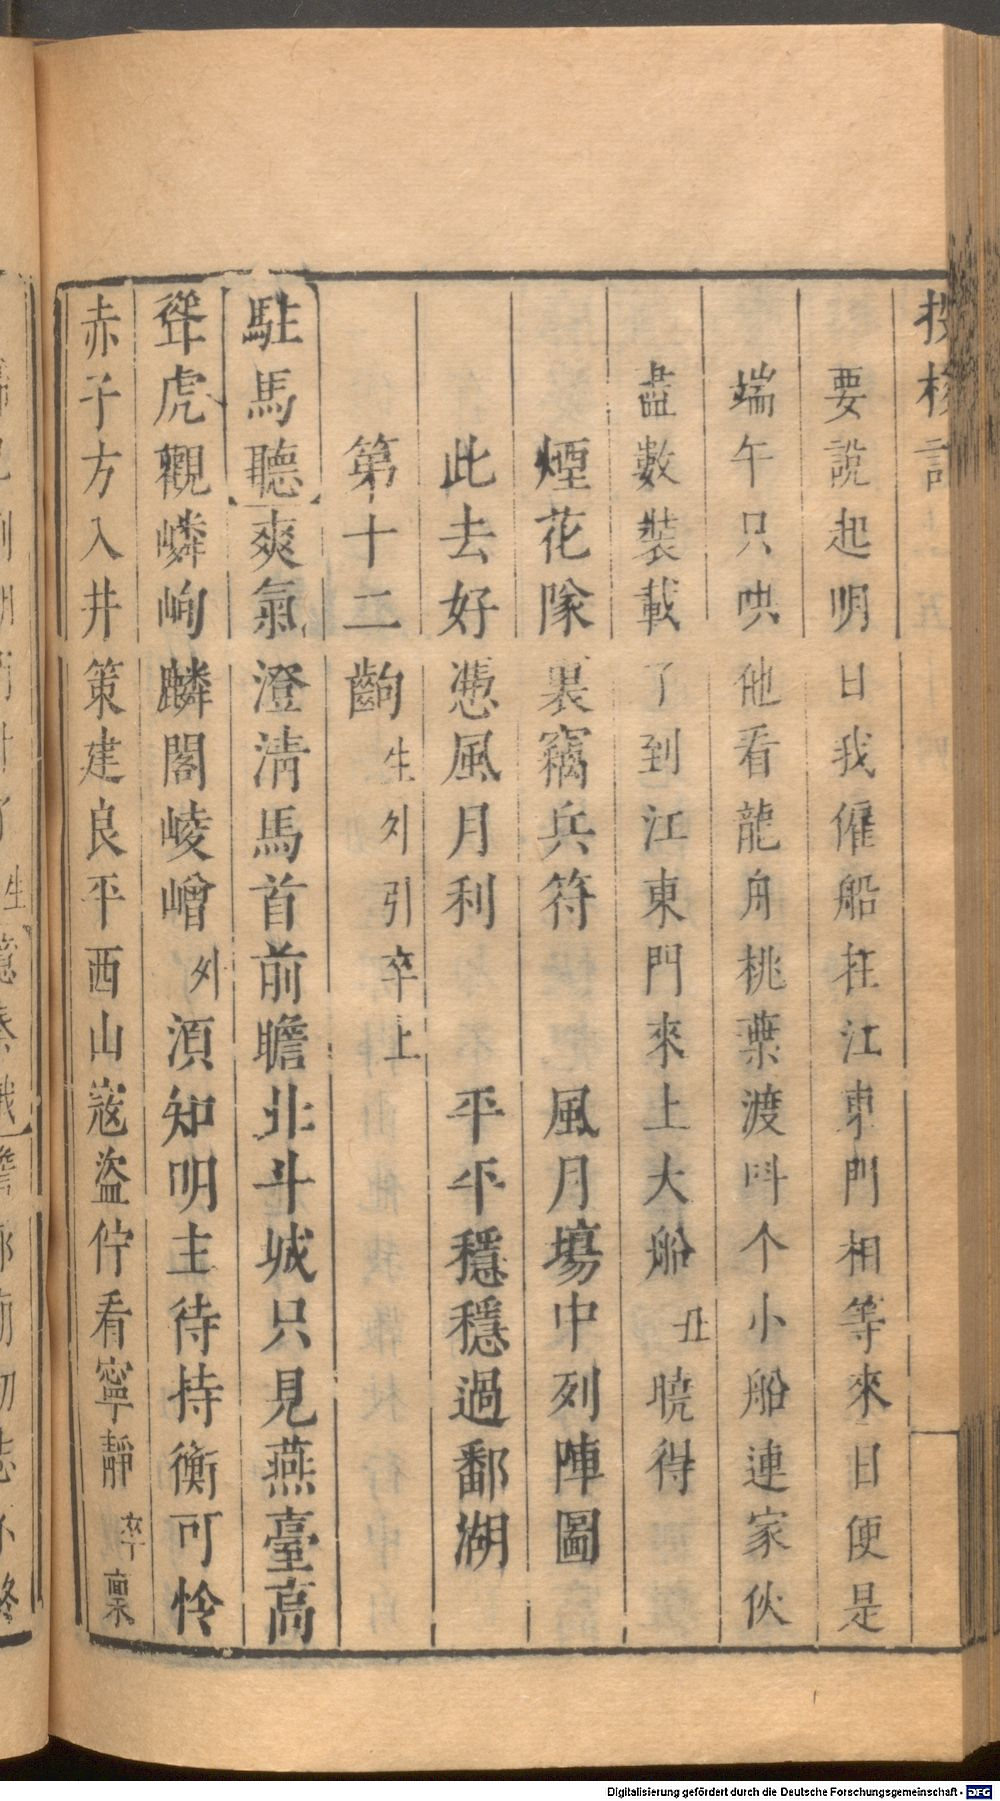 投梭記
要說起明日我僱船在江東門相等來日便是
端午只哄他看龍舟桃葉渡叫个小船連家伙
盡數裝載了到江東門來上大船丑曉得
煙花隊裏竊兵符 風月場中列陣圖
此去好憑風月利 平平穩穩過鄱湖
第十二齣生外引卒上
駐馬聽爽氣澄清馬首前瞻北斗城只見燕臺高
聳虎觀嶙峋麟閣崚嶒外須知明主待持衡可怜
赤子方入井策建良平西山寇盜佇看寧靜卒稟
Digitalisierung gefördert durch die Deutsche Forschungsgemeinschaft - DFG